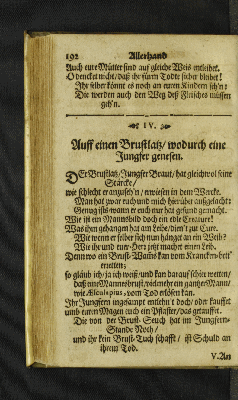 192 Allerhand
Auch eure Mütter sind auf gleiche Weis entleibet.
O dencket nicht/ daß ihr fürm Todte sicher bleibet!
Ihr selber könnt es noch an euren Kindern seh'n:
Die werden auch den Weg deß Fleisches müssen
geh'n.
IV.
Auff einen Brustlatz/ wodurch eine
Jungfer genesen.
DEr Brustlatz/ Jungfer Braut/ hat gleichwol seine
Stärcke/
wie schlecht er anzuseh'n/ erwiesen in dem Wercke.
Man hat zwar euch und mich hierüber außgelacht:
Genug ists/ wann er euch nur hat gesund gemacht.
Wie ist ein Mannsbild doch ein edle Creatur!
Was ihm gehangen hat am Leibe/ dien't zur Cure.
Wie wenn er selber sich nun hänget an ein Weib?
Wie ihr und euer Hertz ist machet einen Leib.
Denn wo ein Brust-Wams kan vom Krancken-bett
erretten;
so gläub ich/ ja ich weiß/ und kan darauf schier wetten/
daß eine Mannesbrust/ vielmehr ein gantzer Mann/
wie Æsculapius, vom Tod erlösen kan.
Ihr Jungfern ingesampt entlehn't doch/ oder kauffet
umb euren Magen euch ein Pflaster/ das getauffet.
Die von der Brust-Seuch hat im Jungfern-
Stande Noth/
und ihr kein Brust-Tuch schafft/ ist Schuld an
ihrem Tod.